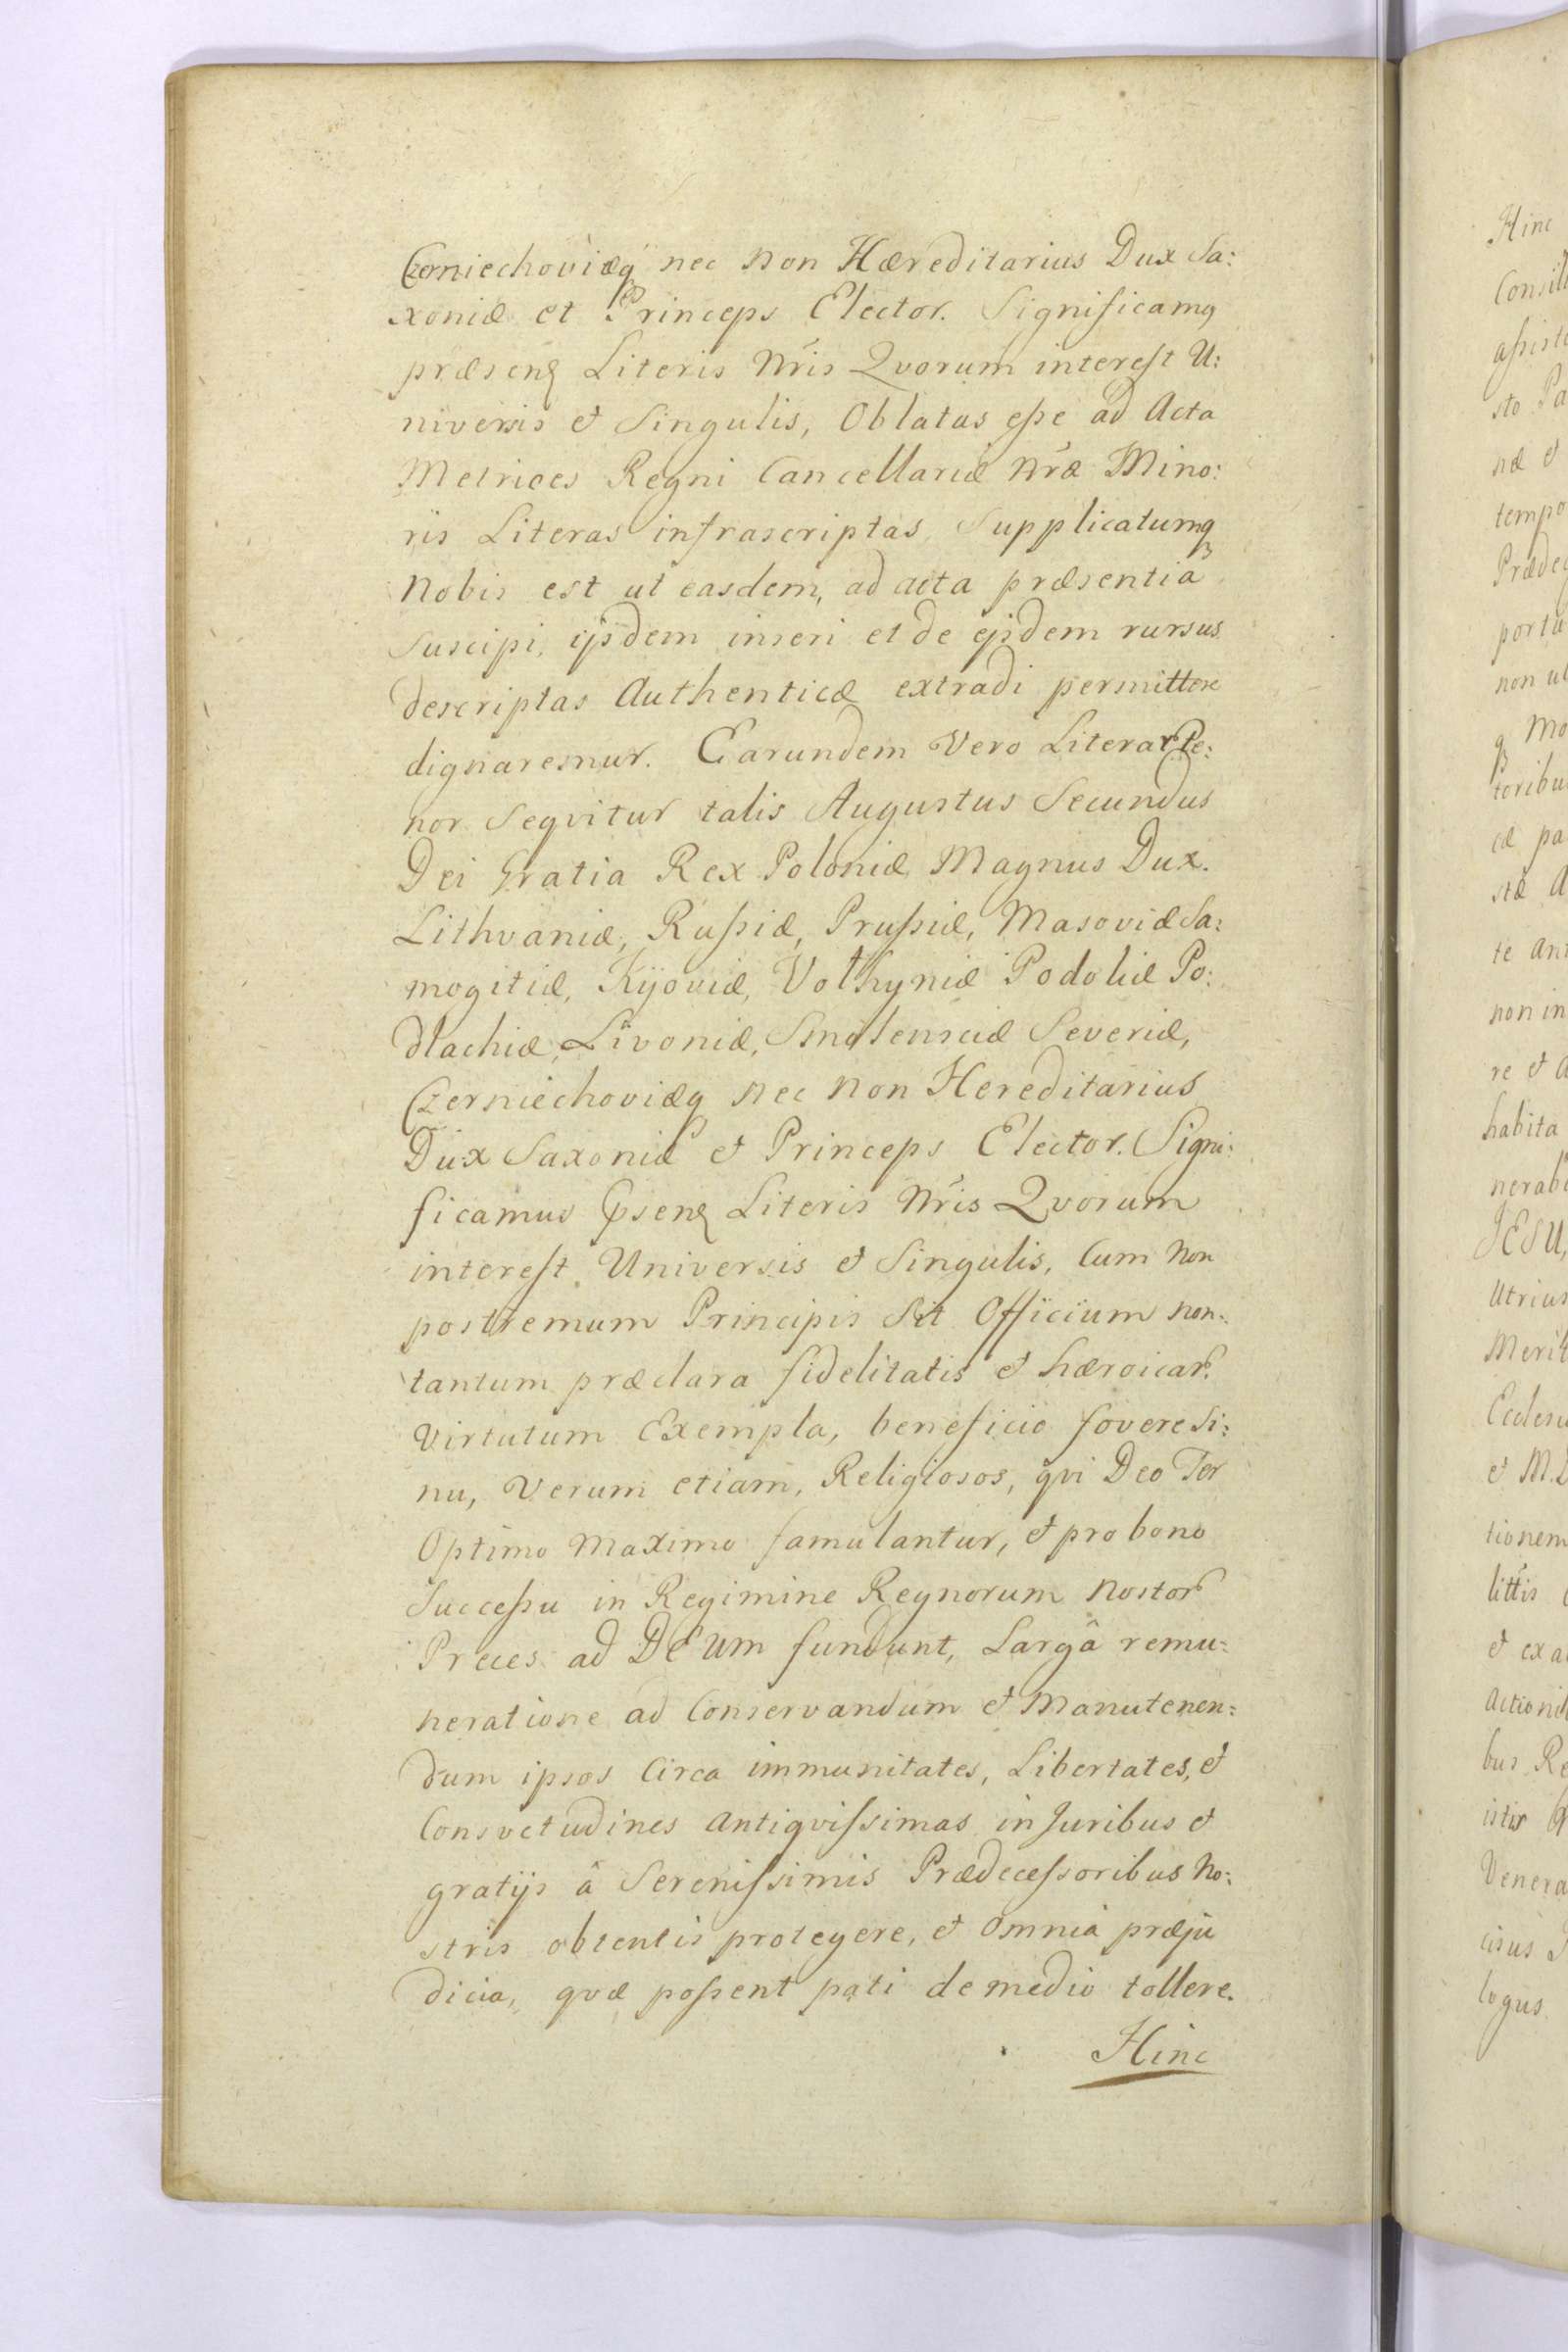 Czerniechoviæq́ nec non Hæreditarius Dux Sa:
xoniæ et Princeps Elector. Significamq
præsenꝫ Literis Nr̃is Qvorum interest U:
niversis et Singulis, Oblatas esse ad Acta
Metrices Regni Cancellariæ Nr̃æ Mino:
ris Literas infrascriptas, Supplicatumqꝫ
Nobis est ut easdem, ad acta præsentia
Suscipi, ijsdem inseri et de ejsdem rursus
descriptas Authenticæ extradi permittere
dignaremur. Earundem Vero Literar Te:
nor Seqvitur talis Augustus Secundus
Dei Gratia Rex Poloniæ Magnus Dux.
Lithvaniæ, Russiæ, Prussiæ, Masoviæ Sa:
mogitiæ, Kijoviæ, Volhyniæ Podoliæ Po:
dlachiæ, Livoniæ, Smolensciæ Severiæ,
Czerniechoviæq nec non Hereditarius
Dux Saxoniæ et Princeps Elector. Signi:
ficamus Psenꝫ Literis Nr̃is Qvorum
interest Universis et Singulis, Cum Non
postremum Principis Sit Officium non:
tantum præclara fidelitatis et hæroicar.
Virtutum Exempla, beneficio fovere Si:
nu, Verum etiam, Religiosos, qvi Deo Ter
Optimo Maximo famulantur, et pro bono
Successu in Regimine Regnorum Nostor
Preces ad DEUm fundunt, Largâ remu:
neratione ad Conservandum et Manutenen:
dum ipsos Circa immunitates, Libertates, et
Consvetudines Antiqvissimas in Juribus et
gratijs â Serenissimis Prædecessoribus No:
stris obtentis protegere, et Omnia præju
dicia, qvæ possent pati de medio tollere.
Hinc
Hinc
Consili
assiste
sto Pa
næ et
tempo
Prædec
portu
non ut
qꝫ Mo
toribu
cæ pa
stæ A
te Ant
non in
re et a
habita
nerab
JESU,
Utrius
Merit
Eccles
et M.D
tionem
litt̃is
et ex a
Actionib
bus Re
istis
Venera
cisus
logus